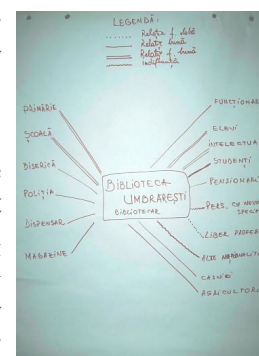 LEGENDĂ:
Relație f. slabă
Relație bună
Relație f. bună
indiferentă
PRIMĂRIE
ȘCOALĂ
BISERICĂ
POLIȚIA
DISPENSAR
MAGAZINE
BIBLIOTECA
UMBRĂREȘTI
BIBLIOTECAR
FUNCȚIONAR
ELEVI
INTELECTUA
STUDENȚI
PENSIONARI
PERS. CU NEVOI
SPECIA
LIBER
ALTE NAȚIONALITĂ
CASNICI
AGRICULTORI